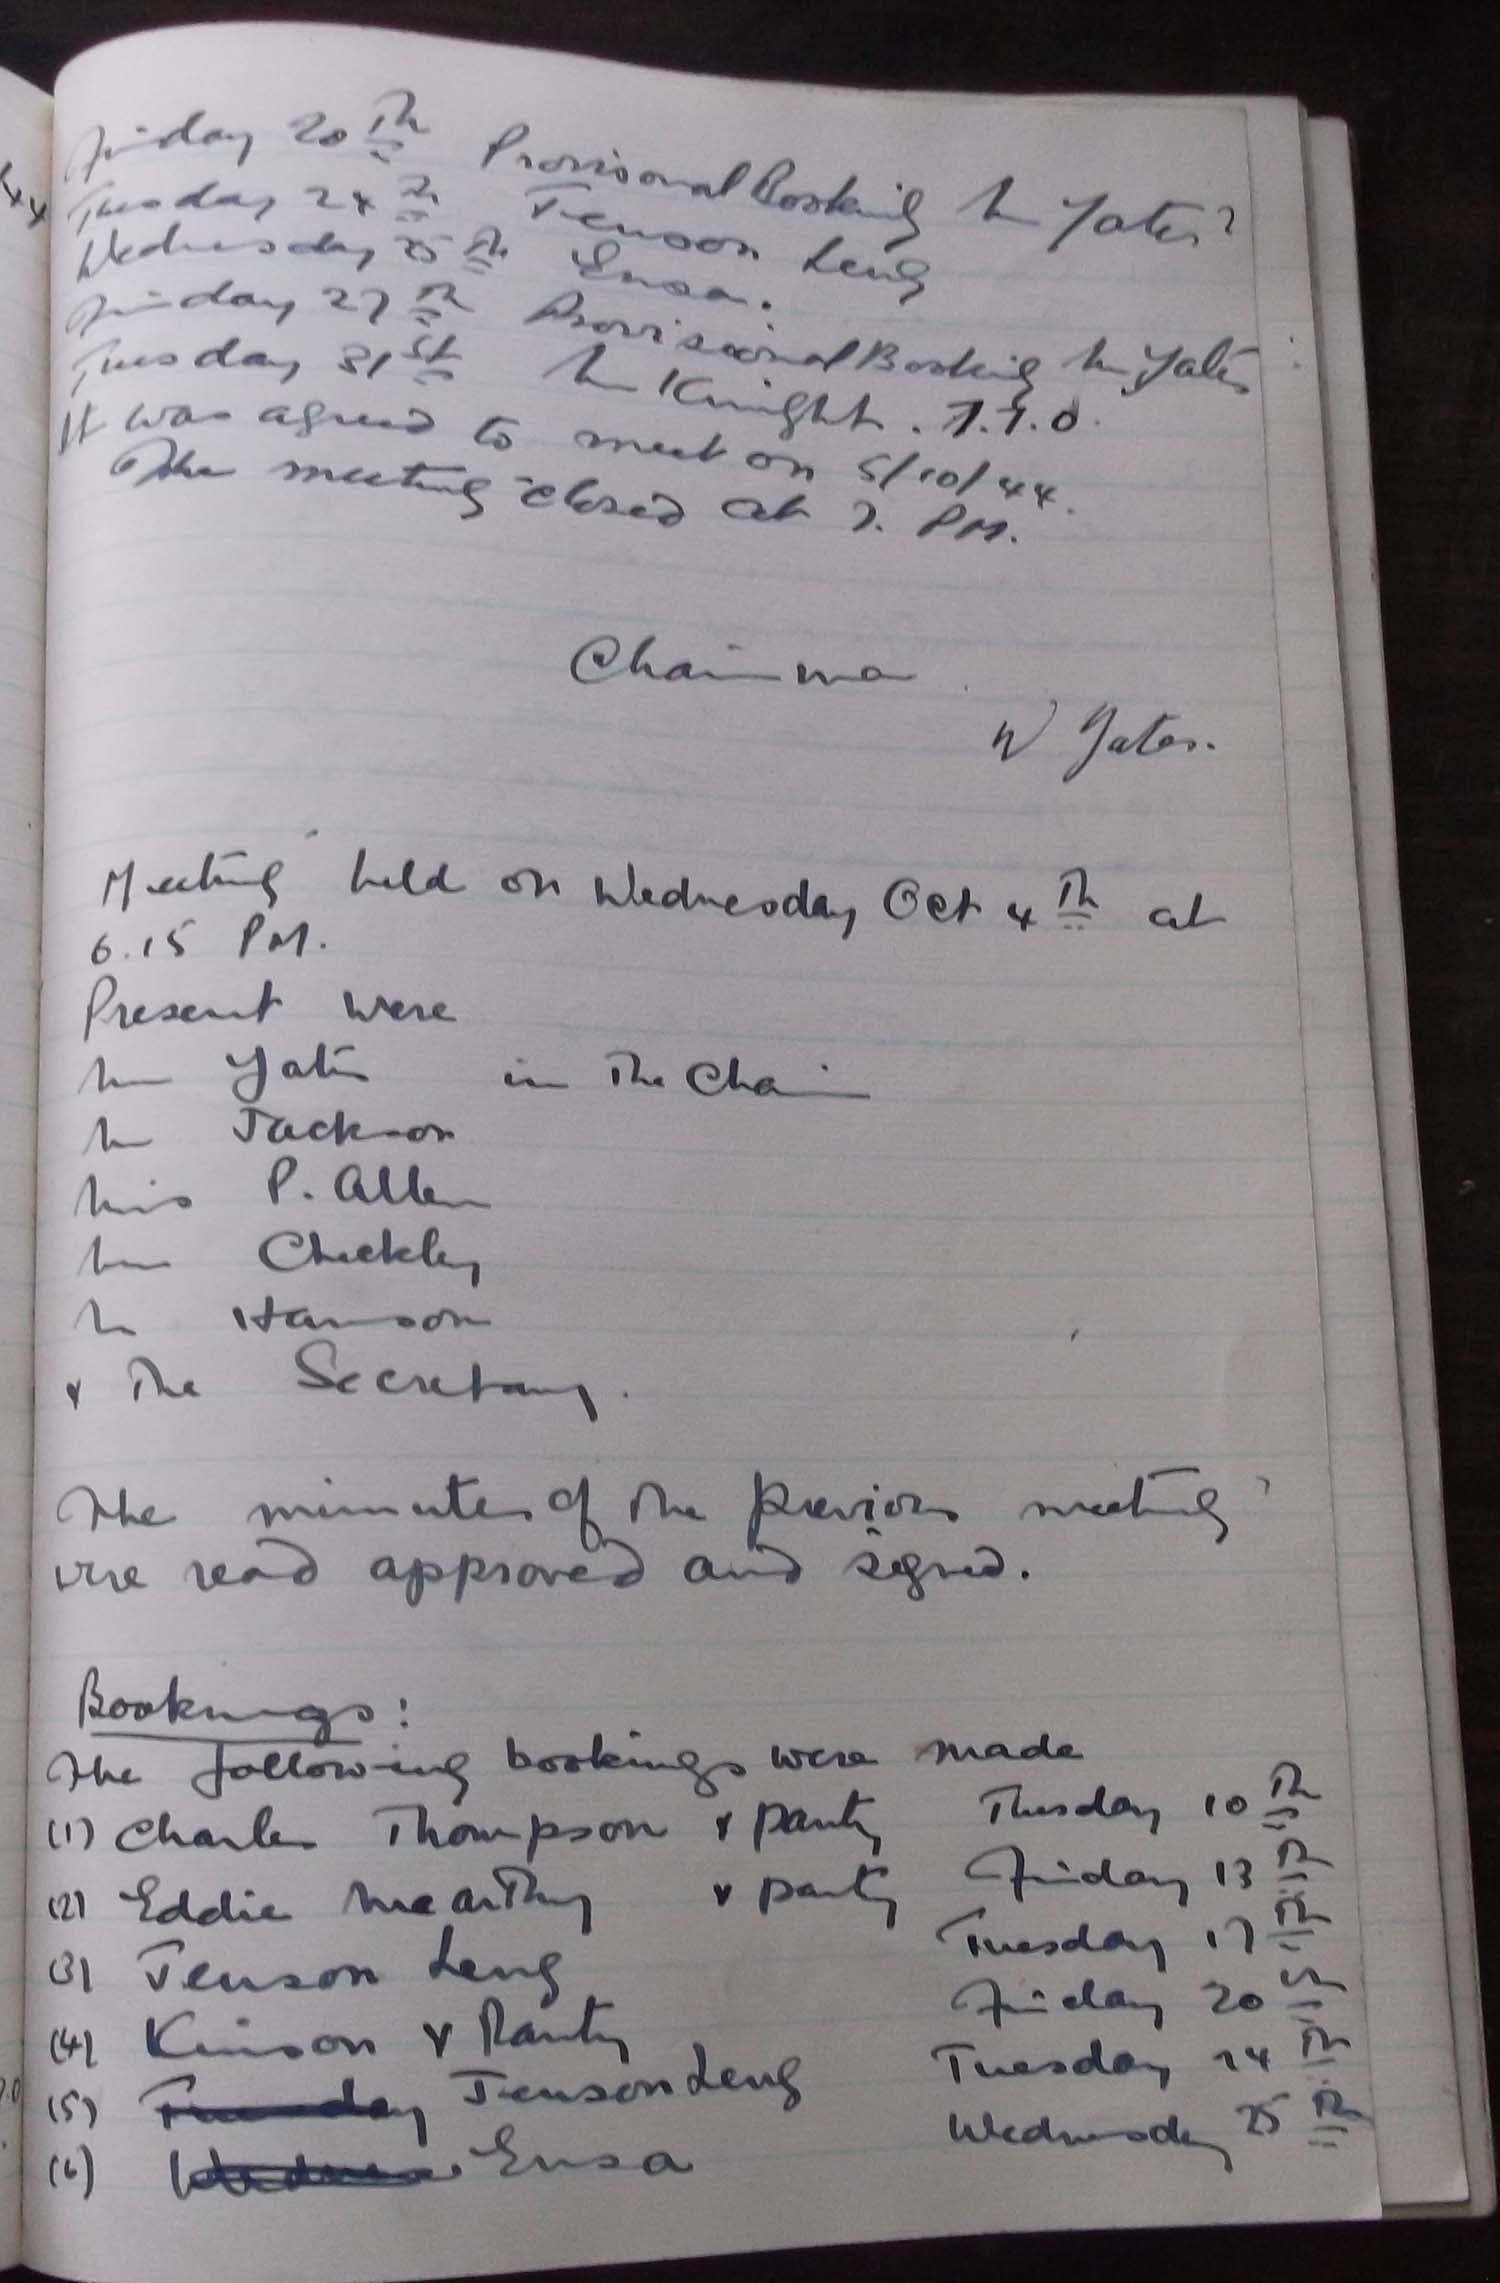 Friday 20th Provisional Booking Mr Yates?
Tuesday 24th Jenson Leng
Wednesday 25th Ensa.
Friday 27th Provisional Booking Mr Yates
Tuesday 31st Mr Knight. T.T.O.
It was agreed to meet on 5/10/44.
The meeting closed at 7. PM.
Chairman
W Yates.
Meeting held on Wednesday Oct 4th at
6.15 PM.
Present were
Mr Yates in The Chair
Mr Jackson
Miss P. Allen
Mr Checkley
Mr Harrison
& The Secretary.
The minutes of the previous meeting
were read approved and signed.
Bookings:
The following bookings were made
(1) Charles Thompson & party Tuesday 10th
(2) Eddie McCarthy & party Friday 13th
(3) Jenson Leng Tuesday 17th
(4) Kinson & Party Friday 20th
(5) Tuesday Jenson Leng Tuesday 24th
(6) Ensa Wednesday 25th